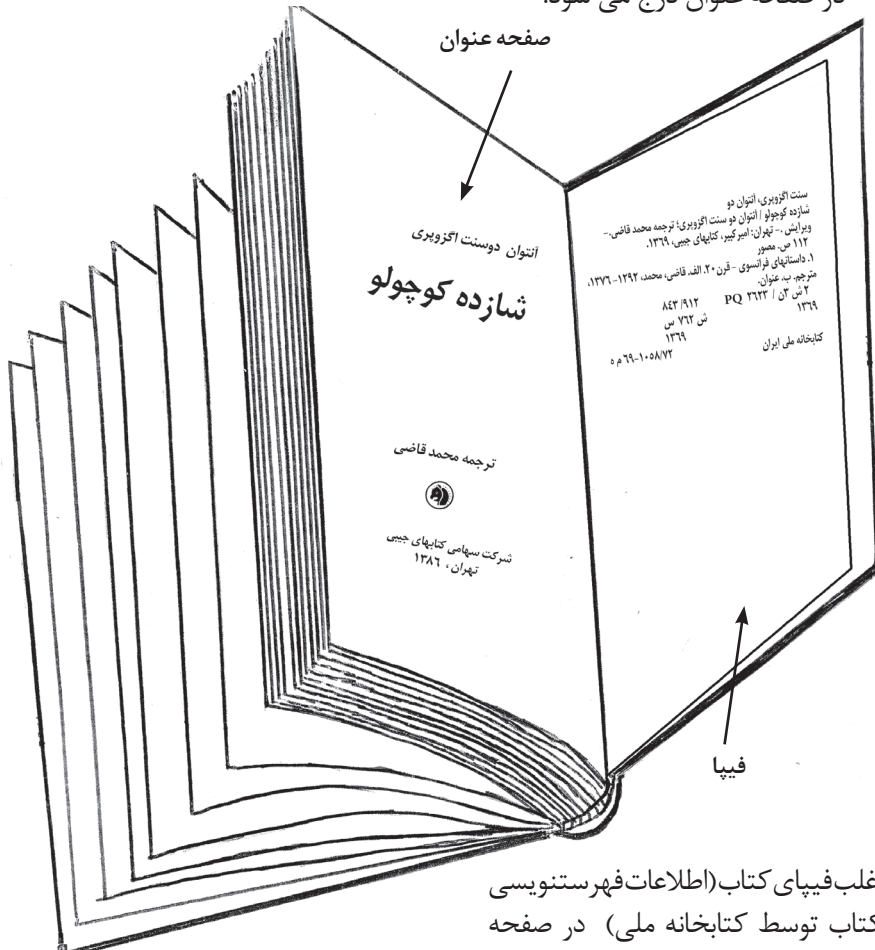 در صفحه عنوان درج می شود.
صفحه عنوان
آنتوان دوسنت اگزوپری
شازده کوچولو
ترجمه محمد قاضی
شرکت سهامی کتابهای جیبی
تهران، ۱۳۸۶
سنت اگزوپری، آنتوان دو
شازده کوچولو / آنتوان دو سنت اگزوپری؛ ترجمه محمد قاضی.-
ویرایش .- تهران: امیرکبیر، کتابهای جیبی، ۱۳۶۹.
۱۱۲ ص. مصور
۱. داستانهای فرانسوی - قرن ۲۰. الف. قاضی، محمد، ۱۲۹۲-۱۳۷۶،
مترجم. ب. عنوان.
۲ ش ۳ن / PQ ۲۶۲۳ ۸۴۳/۹۱۲
۱۳۶۹ ش ۷۶۲ س
۱۳۶۹
کتابخانه ملی ایران ۶۹-۱۰۵۸/۷۲ م ه
فیپا
غلب فیپای کتاب(اطلاعات فهرستنویسی
کتاب توسط کتابخانه ملی) در صفحه